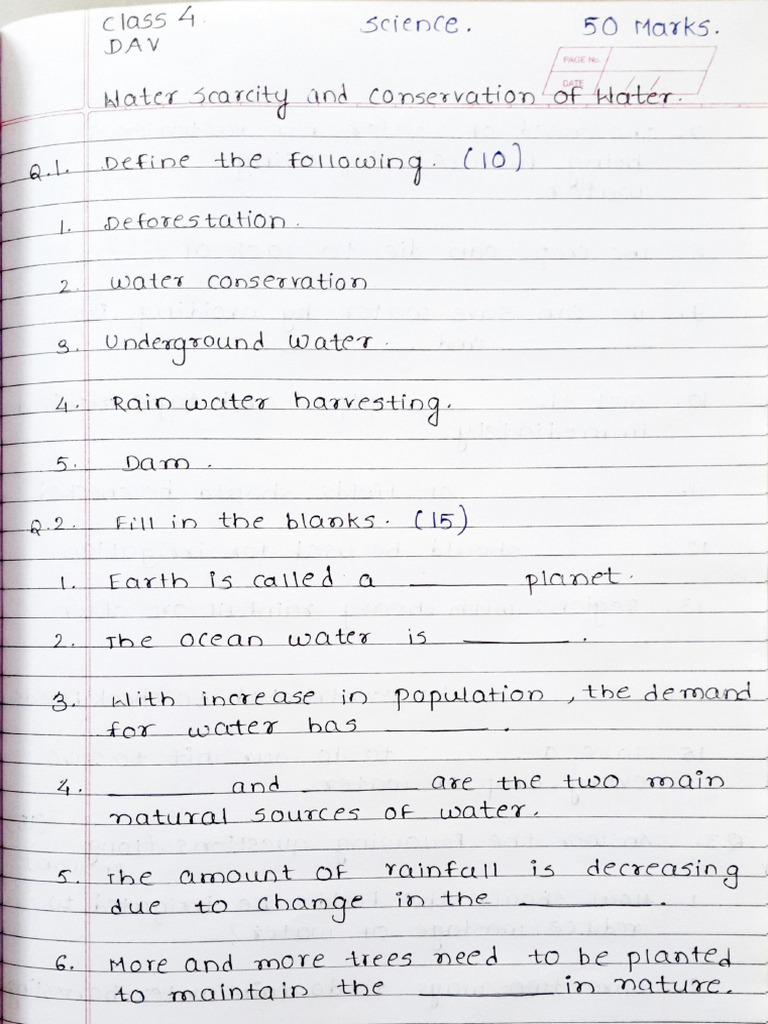 Class 4 Science. 50 Marks.
DAV
PAGE No.
DATE / /
Water scarcity and conservation of Water.
Q.1. Define the following. (10)
1. Deforestation.
2. Water conservation
3. Underground water.
4. Rain water harvesting.
5. Dam.
Q.2. Fill in the blanks. (15)
1. Earth is called a ______ planet.
2. The ocean water is ______.
3. With increase in population, the demand
for water has ______.
4. ______ and ______ are the two main
natural sources of water.
5. The amount of rainfall is decreasing
due to change in the ______.
6. More and more trees need to be planted
to maintain the ______ in nature.